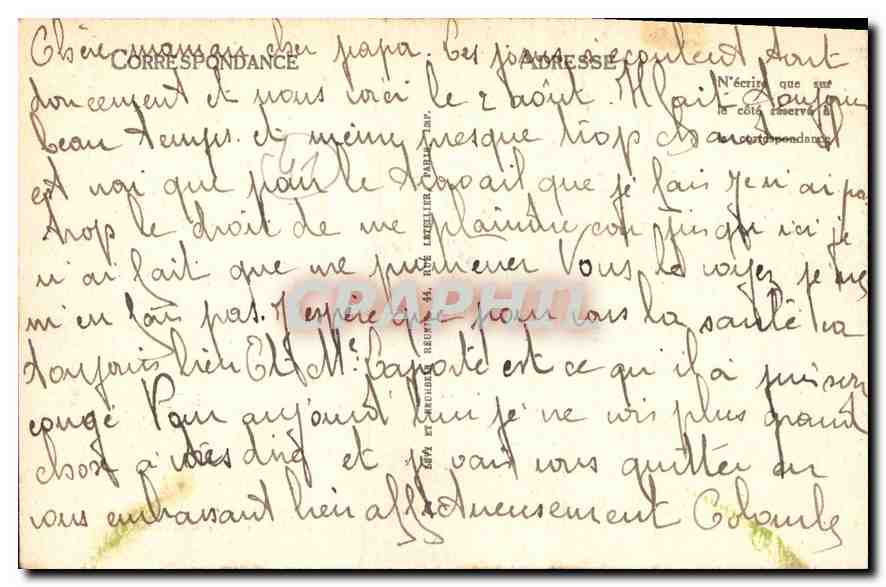 Chère maman cher papa. Les jours s'écoulent tout
CORRESPONDANCE
ADRESSE
N'écrire que sur
le côté réservé à
la correspondance
doucement et nous voici le 2 août. Il fait toujours
beau temps et même presque trop chaud Il
est vrai que pour le travail que je fais je n'ai pas
trop le droit de me plaindre car jusqu'ici je
n'ai fait que me promener Vous le voyez je ne
m'en fais pas. J'espère que pour vous la santé va
toujours bien Et Mr Laporte est ce qu'il a pris son
congé Pour aujourd'hui je ne vois plus grand
chose à vous dire et je vais vous quitter en
vous embrassant bien affectueusement Colombe
LÉVY ET NEURDEIN RÉUNIS, 44, RUE LETELLIER, PARIS, IMP.
CRAPHIT